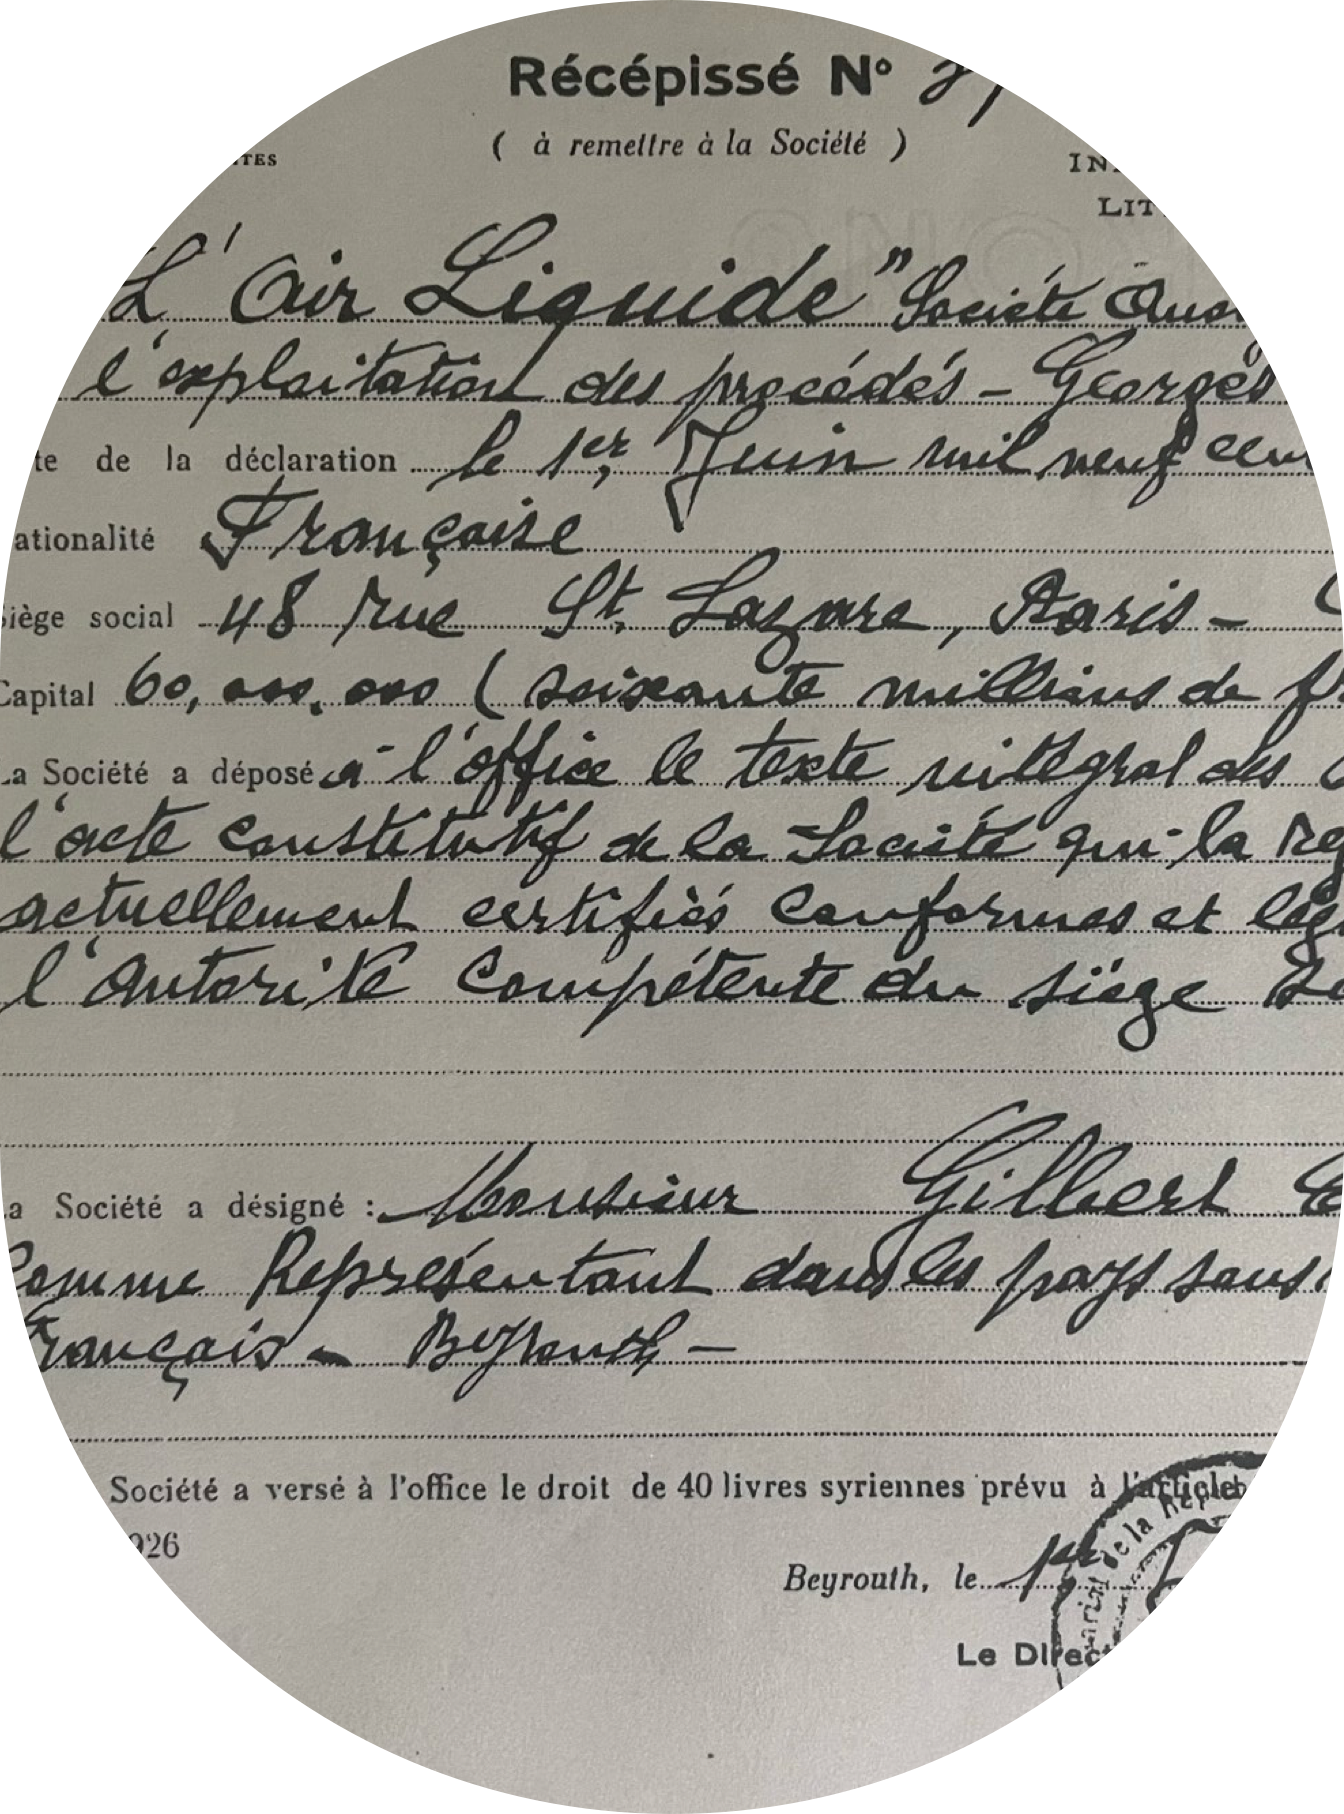 Récépissé N°
( à remettre à la Société )
L'Air Liquide" Société
l'exploitation des procédés - Georges
de la déclaration le 1er Juin mil neuf
Française
social 48 rue St. Lazare, Paris -
Capital 60,000.000 ( soixante millions de
Société a déposé à l'office le texte intégral des
l'acte constitutif de la Société qui la
actuellement certifiés conformes et
l'Autorité compétente du siège
Société a désigné : Monsieur Gilbert
Comme Représentant dans les pays sous
Français - Beyrouth -
Société a versé à l'office le droit de 40 livres syriennes prévu à l'article
Beyrouth, le 1er
de la
Le